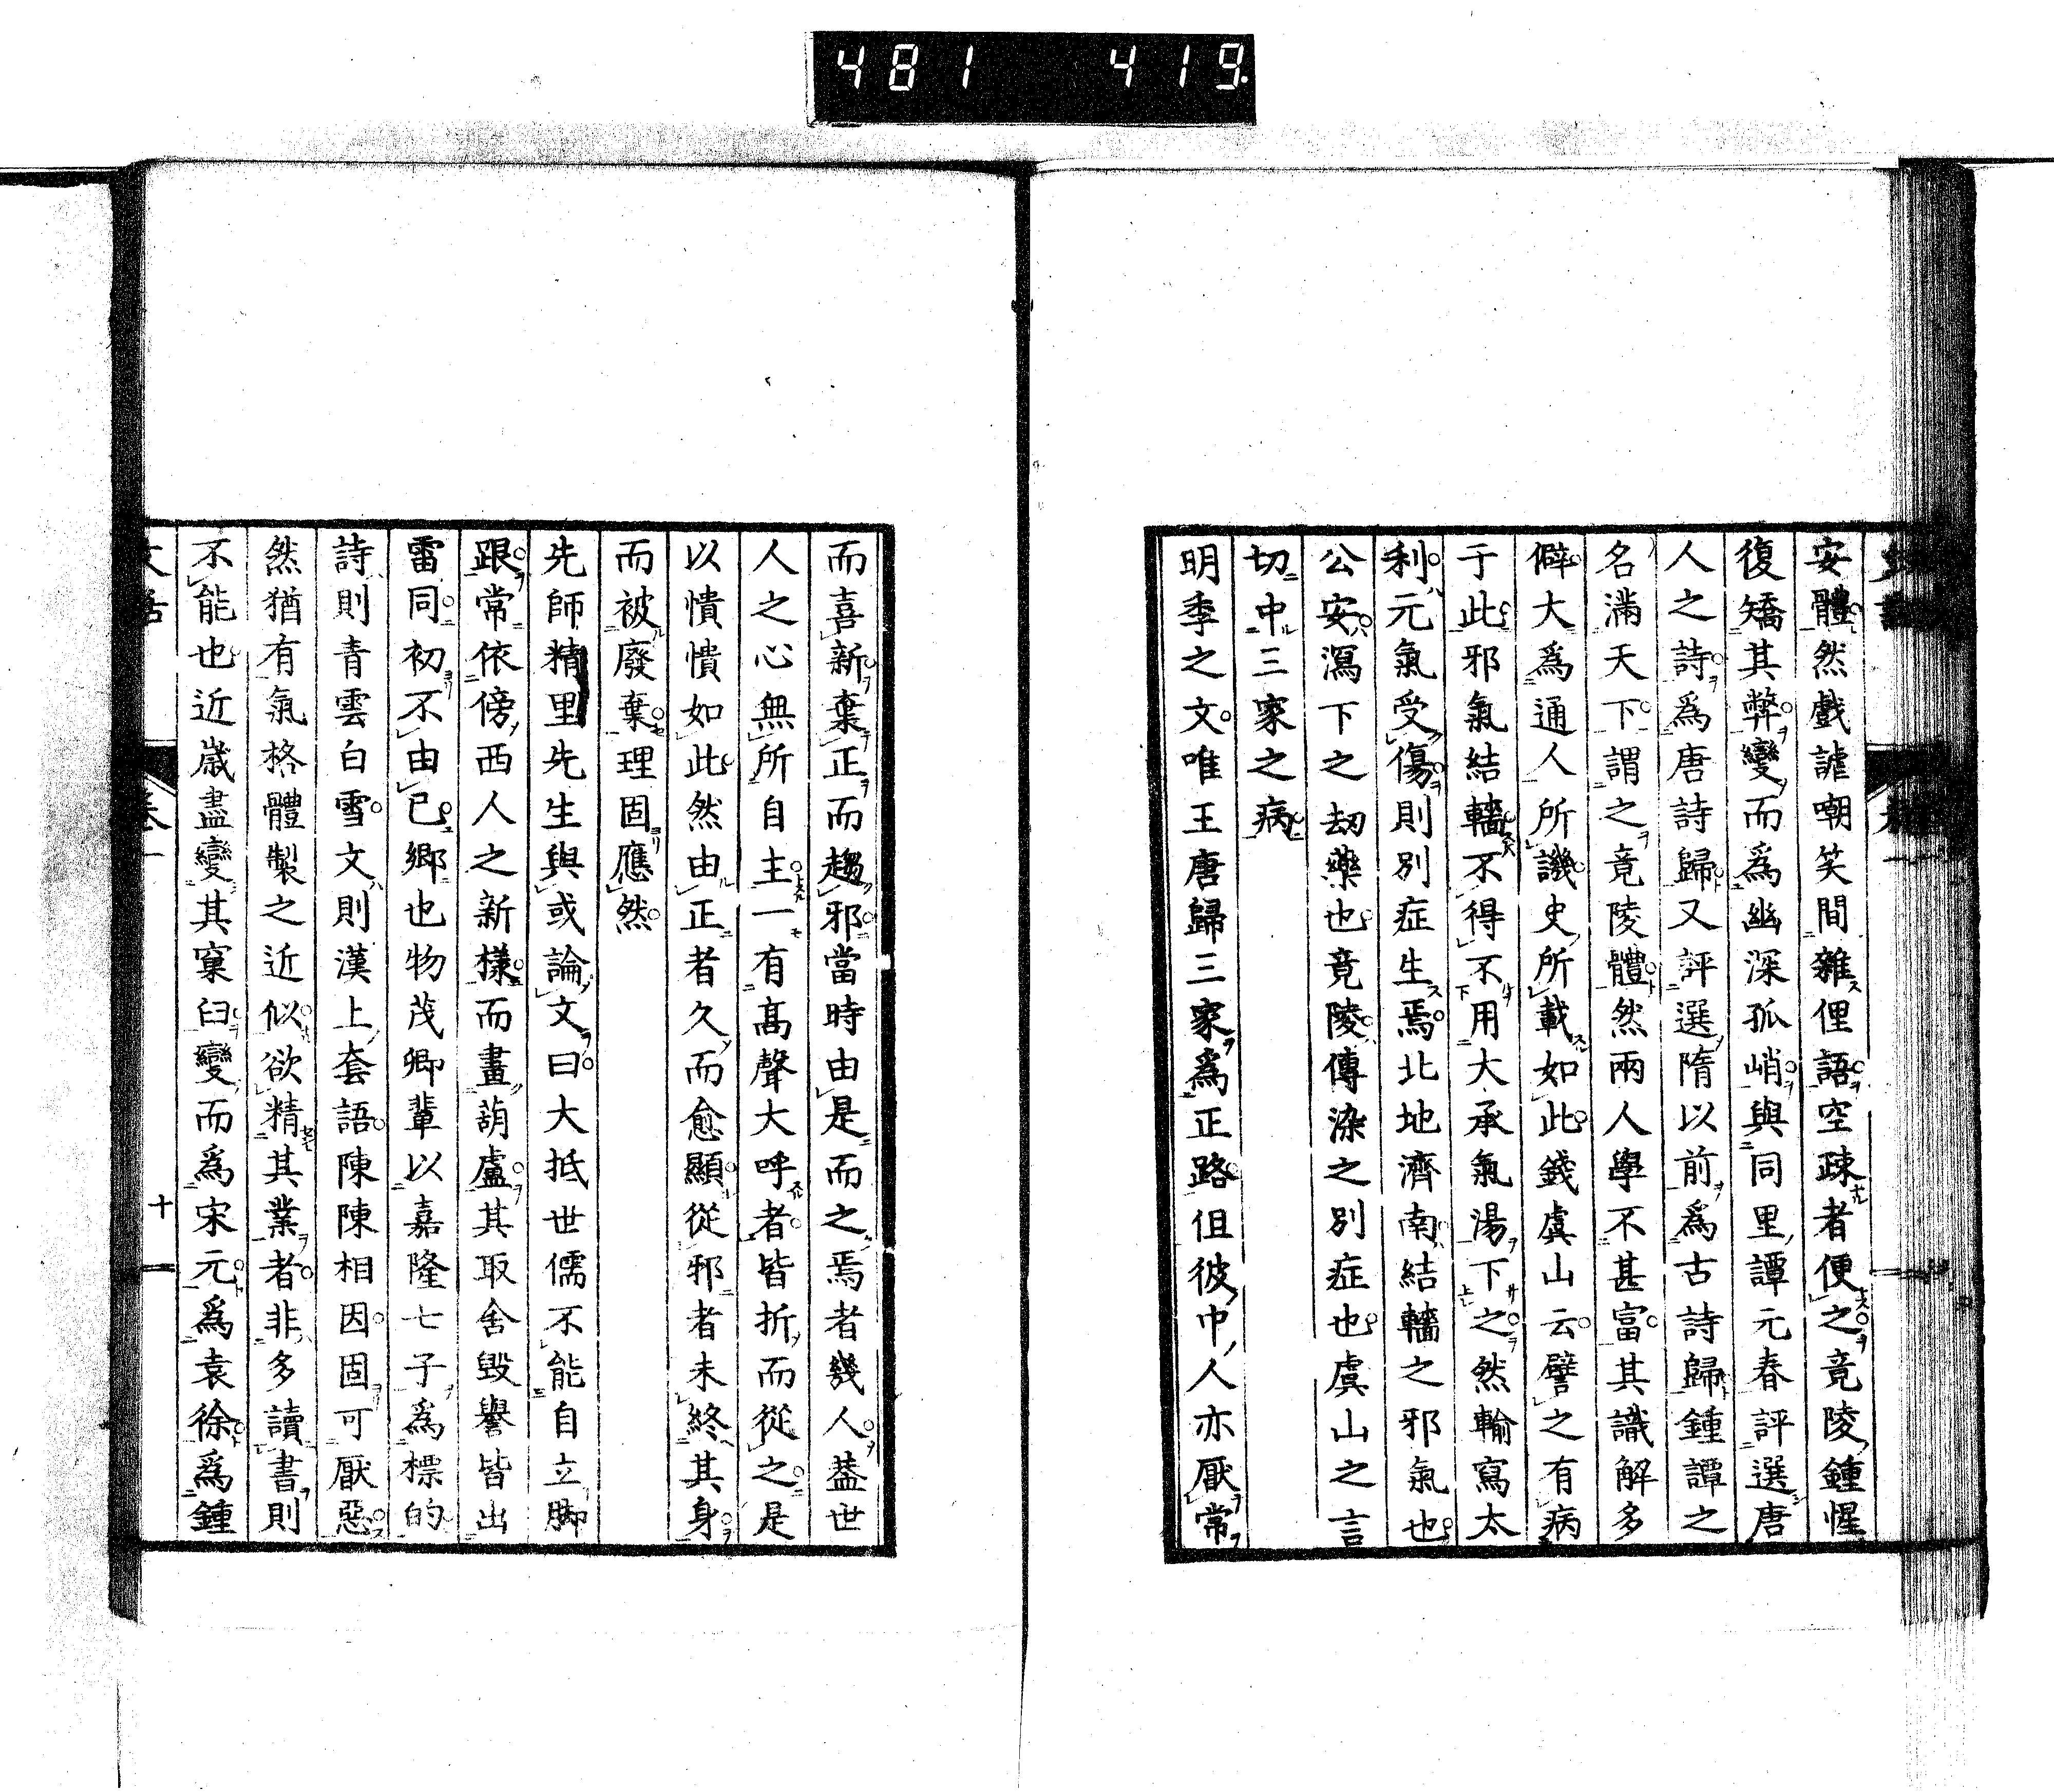 481 419
安體然戲謔嘲笑間雜俚語空疎者便之竟陵鍾惺
復矯其弊變而爲幽深孤峭與同里譚元春評選唐
人之詩爲唐詩歸又評選隋以前爲古詩歸鍾譚之
名滿天下謂之竟陵體然兩人學不甚富其識解多
僻大爲通人所譏史所載如此錢虞山云譬之有病
于此邪氣結轖不得不用大承氣湯下之然輸寫太
利元氣受傷則別症生焉北地濟南結轖之邪氣也
公安瀉下之劫藥也竟陵傳染之別症也虞山之言
切中三家之病
明季之文唯王唐歸三家爲正路但彼中人亦厭常
而喜新棄正而趨邪當時由是而之焉者幾人葢世
人之心無所自主一有高聲大呼者皆折而從之是
以憒憒如此然由正者久而愈顯從邪者未終其身
而被廢棄理固應然
先師精里先生與或論文曰大抵世儒不能自立脚
跟常依傍西人之新樣而畫葫盧其取舍毀譽皆出
雷同初不由已鄉也物茂卿輩以嘉隆七子爲標的
詩則青雲白雪文則漢上套語陳陳相因固可厭惡
然猶有氣格體製之近似欲精其業者非多讀書則
不能也近歲盡變其窠臼變而爲宋元爲袁徐爲鍾
十一